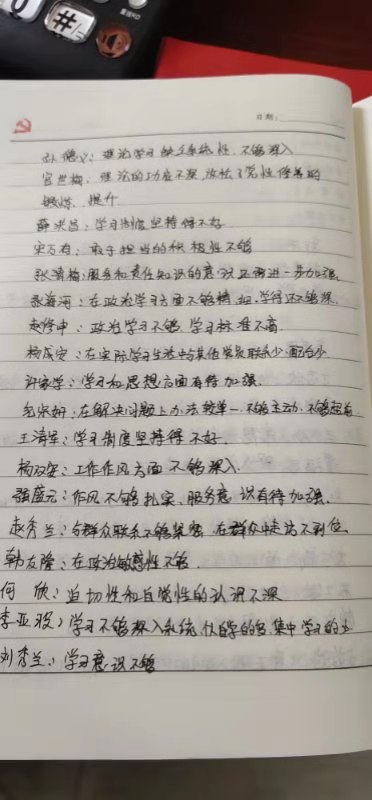 重拨/RD
#/-
0
日期:
孙德义:理论学习缺乏系统性,不够深入
官世梅:理论的功底不深,放松了党性修养的
锻炼、提升
薛洪昌:学习制度坚持得不好
宋万有:敢于担当的积极性不够
张清梅:服务和责任知识的意识还需进一步加强.
聂海河:在政治学习方面不够精细,学得还不够深.
赵修中:政治学习不够,学习标准不高.
杨成安:在实际学习生活中与其他党员联系少,配合少
许家学:学习和思想方面有待加强.
毛宗妍:在解决问题上办法较单一,不够主动,不够超前
王清军:学习制度坚持得不好.
杨召安:工作作风方面不够深入
强盛元:作风不够扎实、服务意识有待加强.
赵秀兰:与群众联系不够紧密,在群众中走访不到位.
韩友隆:在政治敏感性不够.
何欣:迫切性和自觉性的认识不深
李亚波:学习不够深入系统,仅自学的多,集中学习的少
刘秀兰:学习意识不够